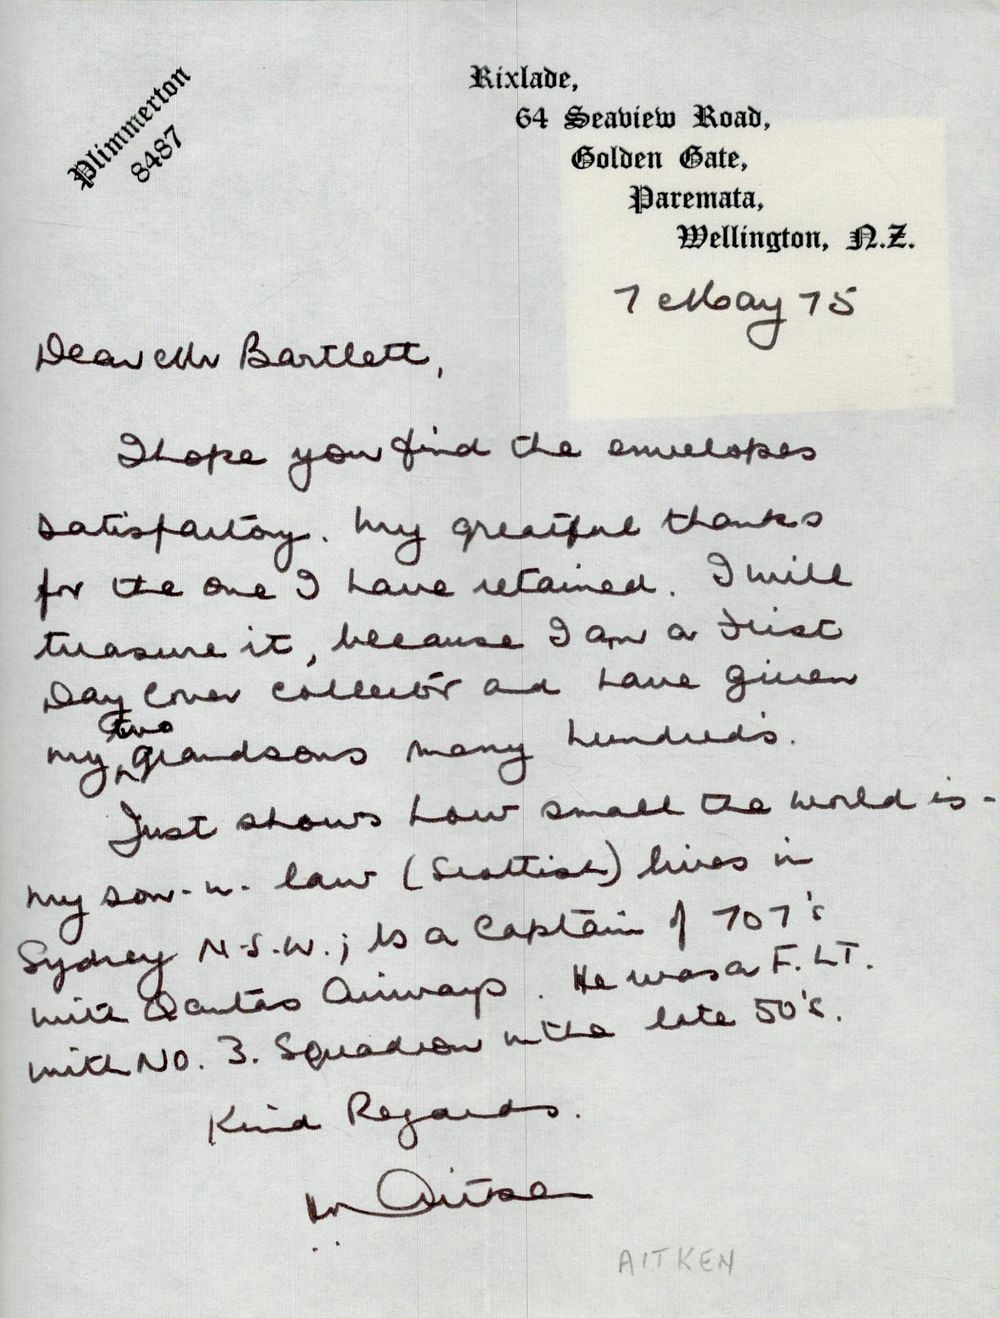 Plimmerton
8487
Rixlade,
64 Seaview Road,
Golden Gate,
Paremata,
Wellington, N.Z.
7 May 75
Dear Mr Bartlett,
I hope you find the envelopes
satisfactory. My greatful thanks
for the one I have retained. I will
treasure it, because I am a First
Day Cover collector and have given
my two grandsons many hundreds.
Just shows how small the world is -
my son-in-law (Scottish) lives in
Sydney N.S.W.; Is a Captain of 707's
with Qantas Airways. He was a F. LT.
with No. 3. Squadron in the late 50's.
Kind Regards.
Aitken
AITKEN